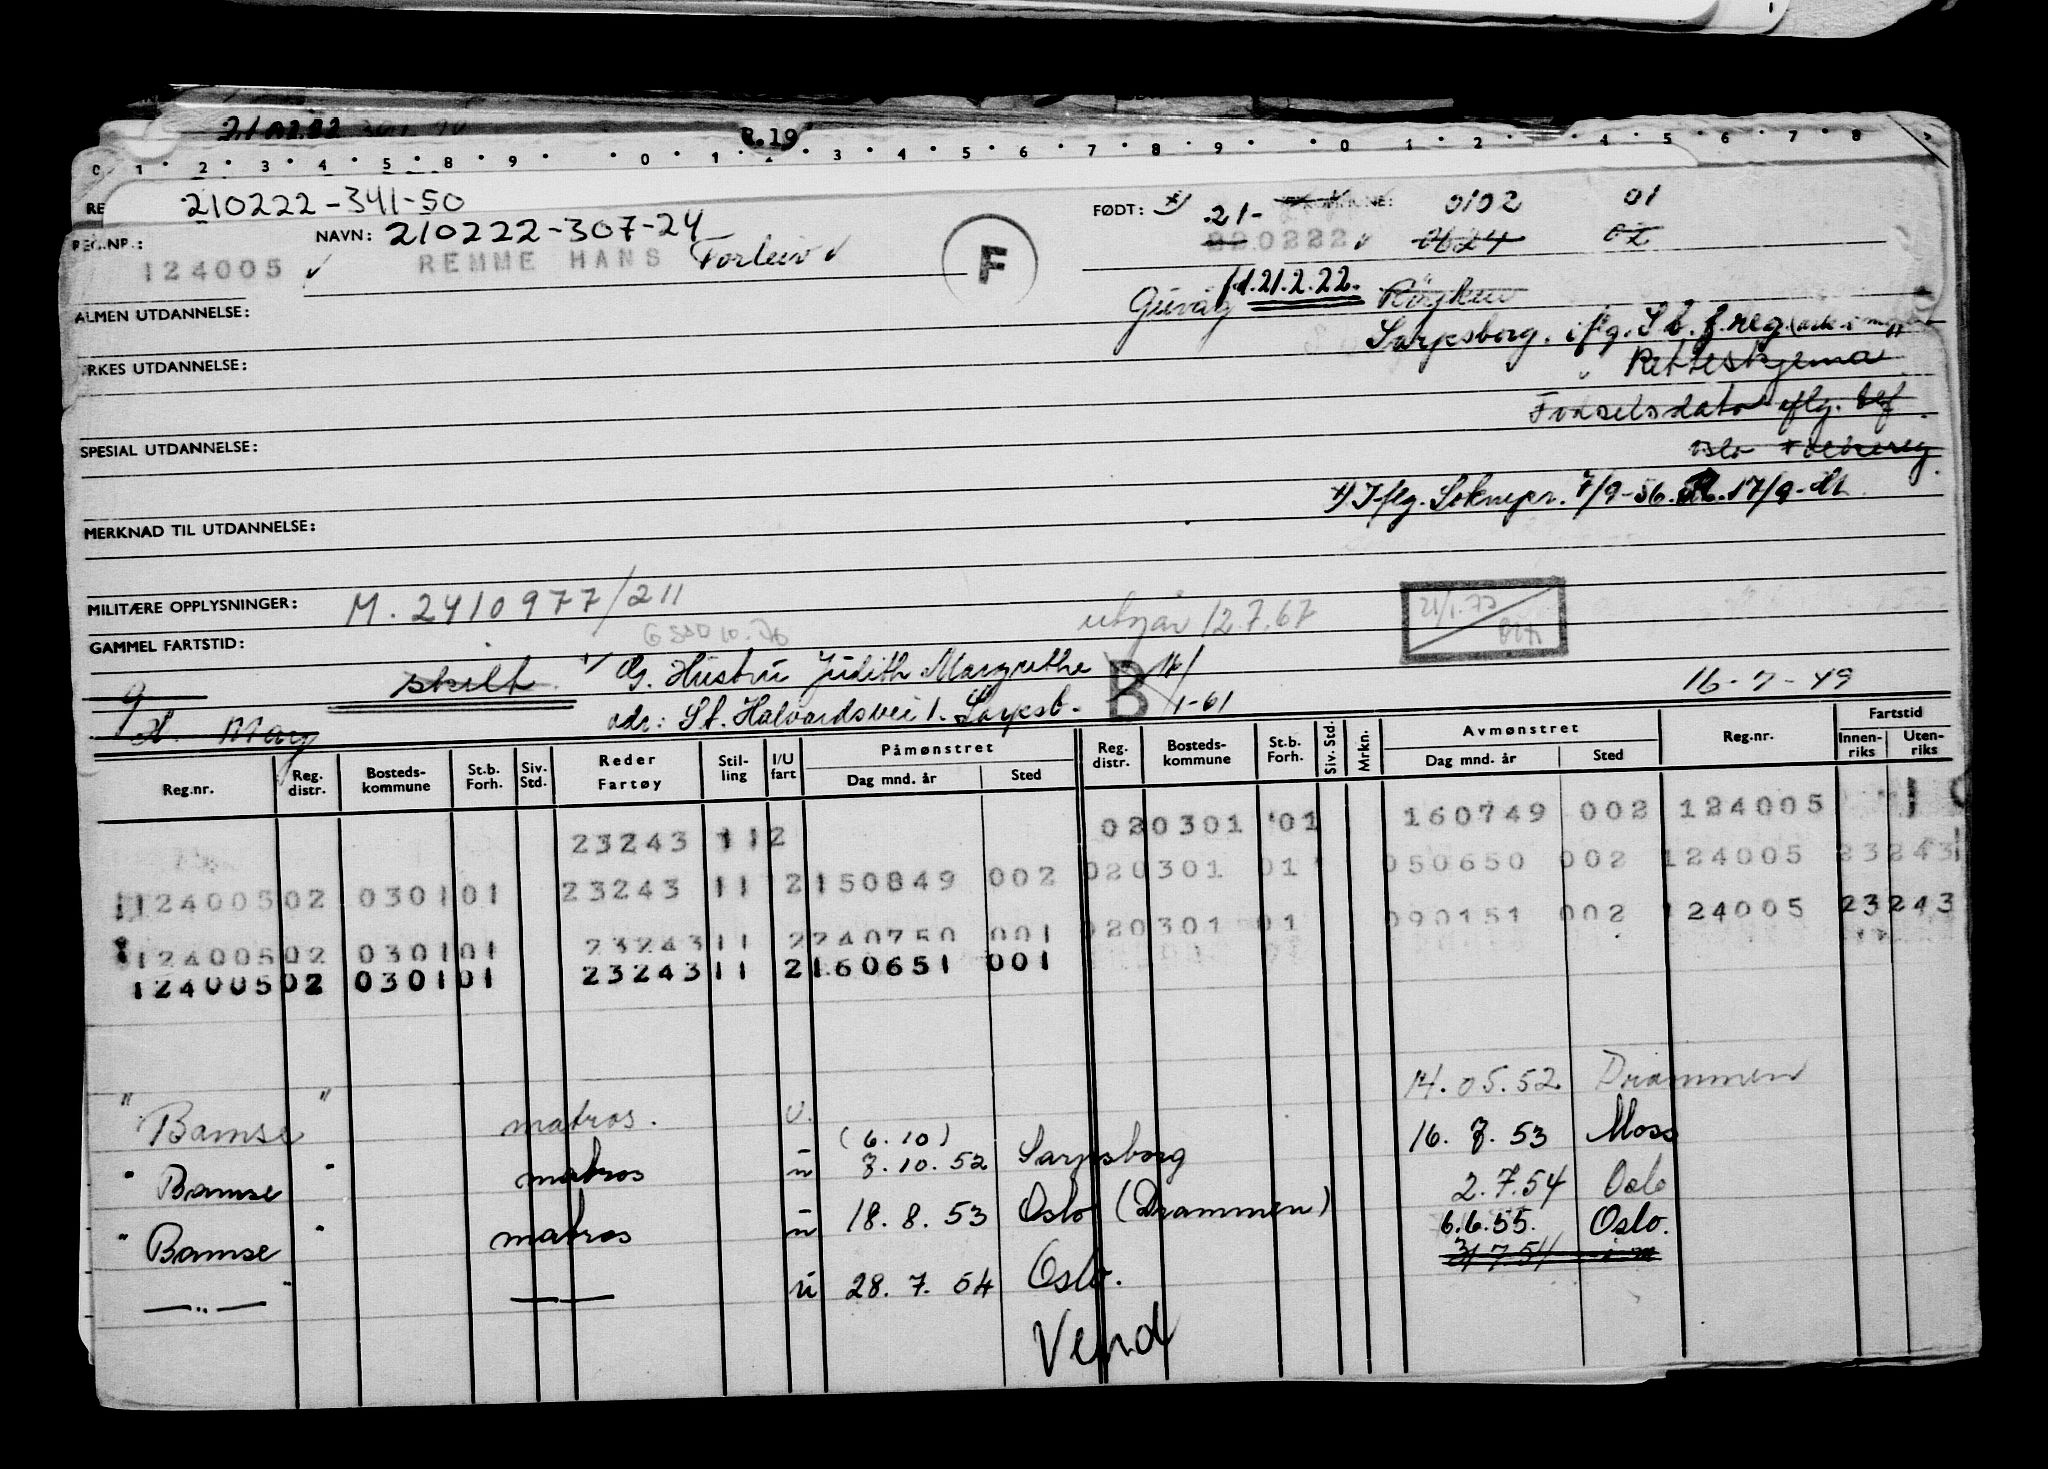 21.02.22
R.19
0 1 2 3 4 5 8 9 0 1 2 3 4 5 6 7 8 9 0 1 2 4 5 6 7 8
RE 210222-341-50
FØDT: x) 21- 0102 01
REG.NR.: NAVN: 210222-307-24 220222 ✓ 0624 02
124005 ✓ REMME HANS Torleiv ✓ F
f.d. 21.2.22.
ALMEN UTDANNELSE:
Sarpsborg. iflg. S.b.f.reg.
YRKES UTDANNELSE: Retteskjema
Fødselsdato iflg. bef
SPESIAL UTDANNELSE: Oslo Folkereg.
x) Iflg. Soknepr. 7/9-56. 17/9-
MERKNAD TIL UTDANNELSE:
MILITÆRE OPPLYSNINGER: M. 2410977/211
utgår 12.7.67 21/1.73
GAMMEL FARTSTID:
skilt G. Hustru Judith Margrethe B 16-7-49
adr: St. Halvardsvei 1. Sarpsb. 1-61
g
Marg
Reg.nr. Reg. distr. Bosteds- kommune St.b. Forh. Siv. Std. Reder Fartøy Stil- ling I/U fart Påmønstret Dag mnd. år Sted Reg. distr. Bosteds- kommune St.b. Forh. Siv. Std. Mrkn. Avmønstret Dag mnd. år Sted Reg.nr. Fartstid Innen- riks Uten- riks
23243 112 020301 01 160749 002 124005
124005 02 0301 01 23243 11 2 150849 002 020301 01 050650 002 124005 23243
124005 02 0301 01 23243 11 2 240750 001 020301 01 090151 002 124005 23243
124005 02 0301 01 23243 11 2 160651 001
14.05.52 Drammen
" Bamse " matros. U. (6.10) 16.7.53 Moss
" Bamse " matros u 7.10.52 Sarpsborg 2.7.54 Oslo
" Bamse " matros u 18.8.53 Oslo (Drammen) 6.6.55. Oslo.
31.7.54
— " — — — u 28.7.54 Oslo.
Vend